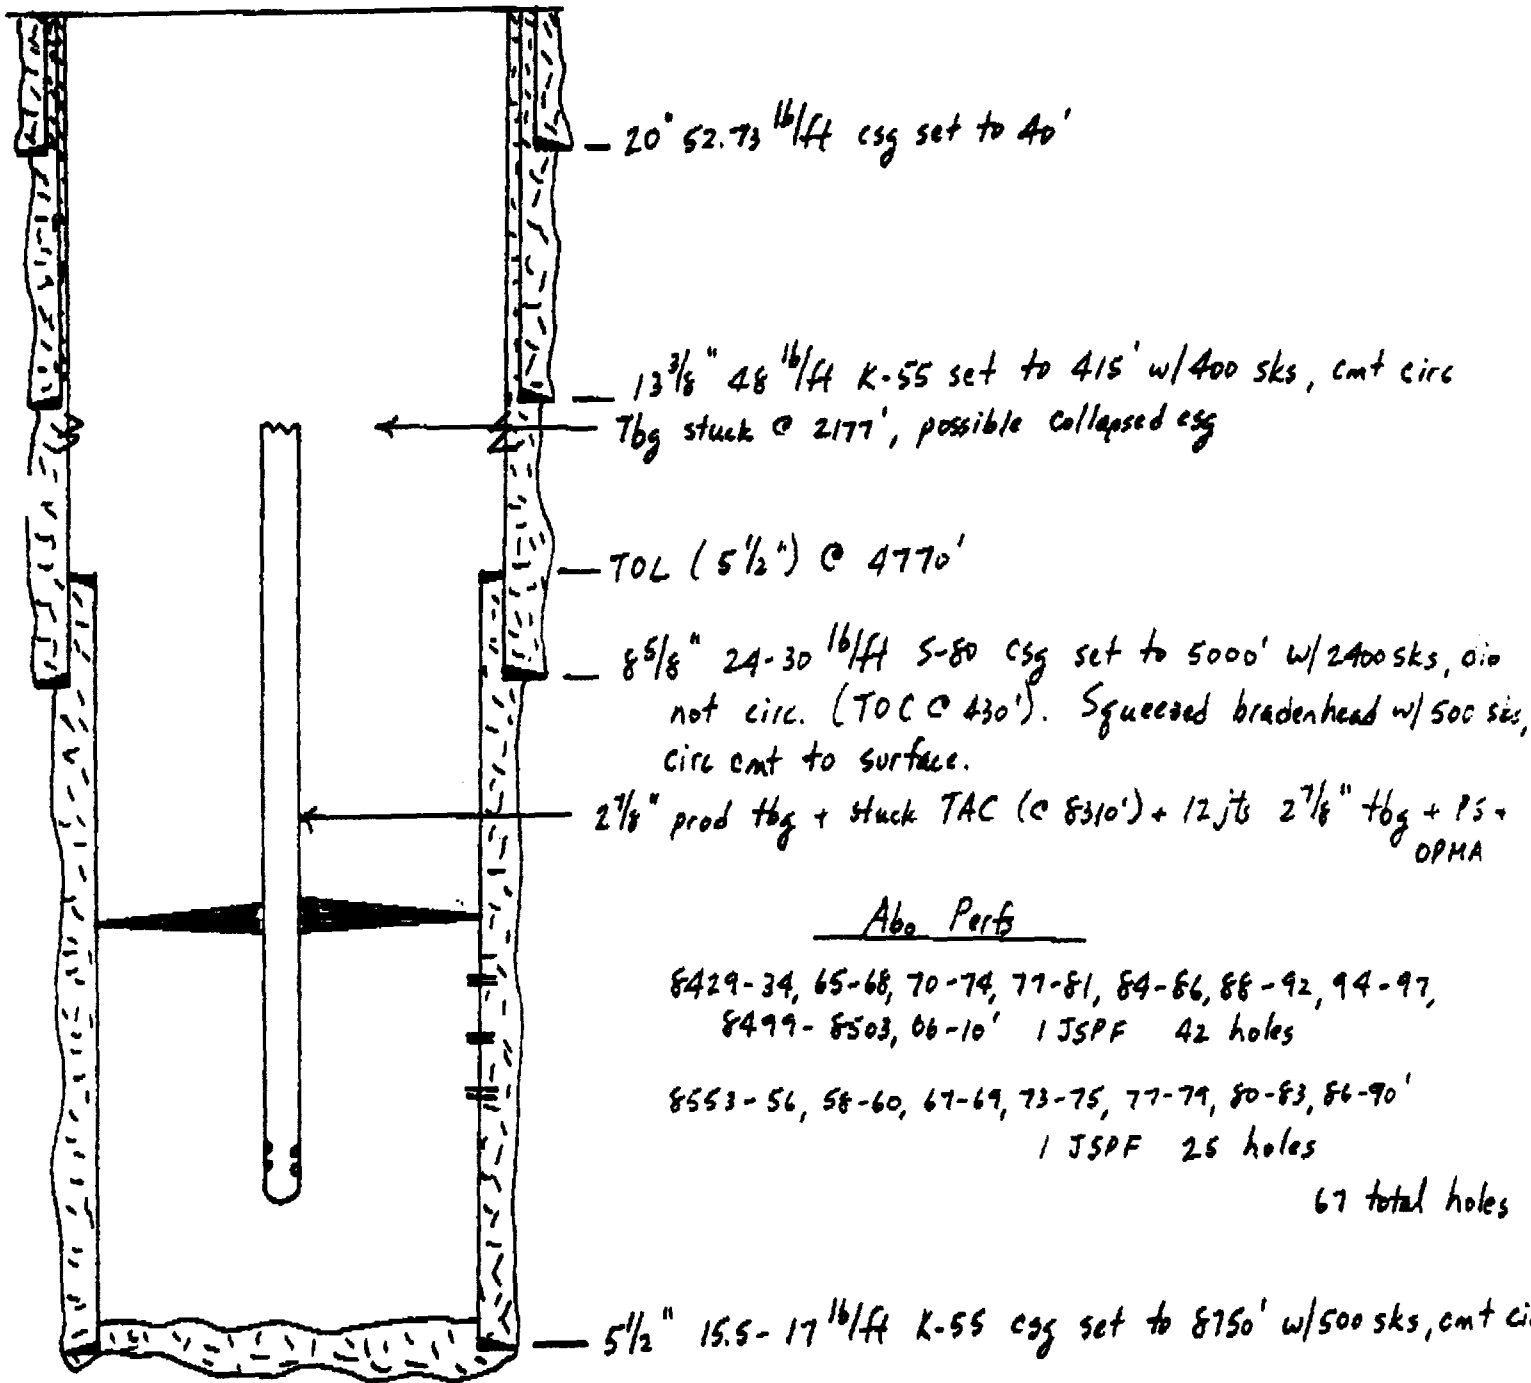 20" 52.73 lb/ft csg set to 40'
13 3/8" 48 lb/ft K-55 set to 415' w/400 sks, cmt circ
Tbg stuck @ 2177', possible collapsed csg
TOL (5 1/2") @ 4770'
8 5/8" 24-30 lb/ft S-80 csg set to 5000' w/2400 sks, did
not circ. (TOC @ 430'). Squeezed bradenhead w/ 500 sks,
circ cmt to surface.
2 7/8" prod tbg + stuck TAC (@ 8310') + 12 jts 2 7/8" tbg + PS +
OPMA
Abo Perfs
8429-34, 65-68, 70-74, 77-81, 84-86, 88-92, 94-97,
8499-8503, 06-10' 1 JSPF 42 holes
8553-56, 58-60, 67-69, 73-75, 77-79, 80-83, 86-90'
1 JSPF 25 holes
67 total holes
5 1/2" 15.5-17 lb/ft K-55 csg set to 8750' w/500 sks, cmt ci